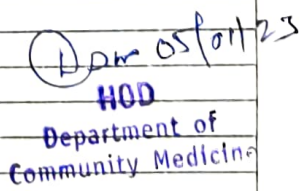 05/01/23
HOD
Department of
Community Medicine